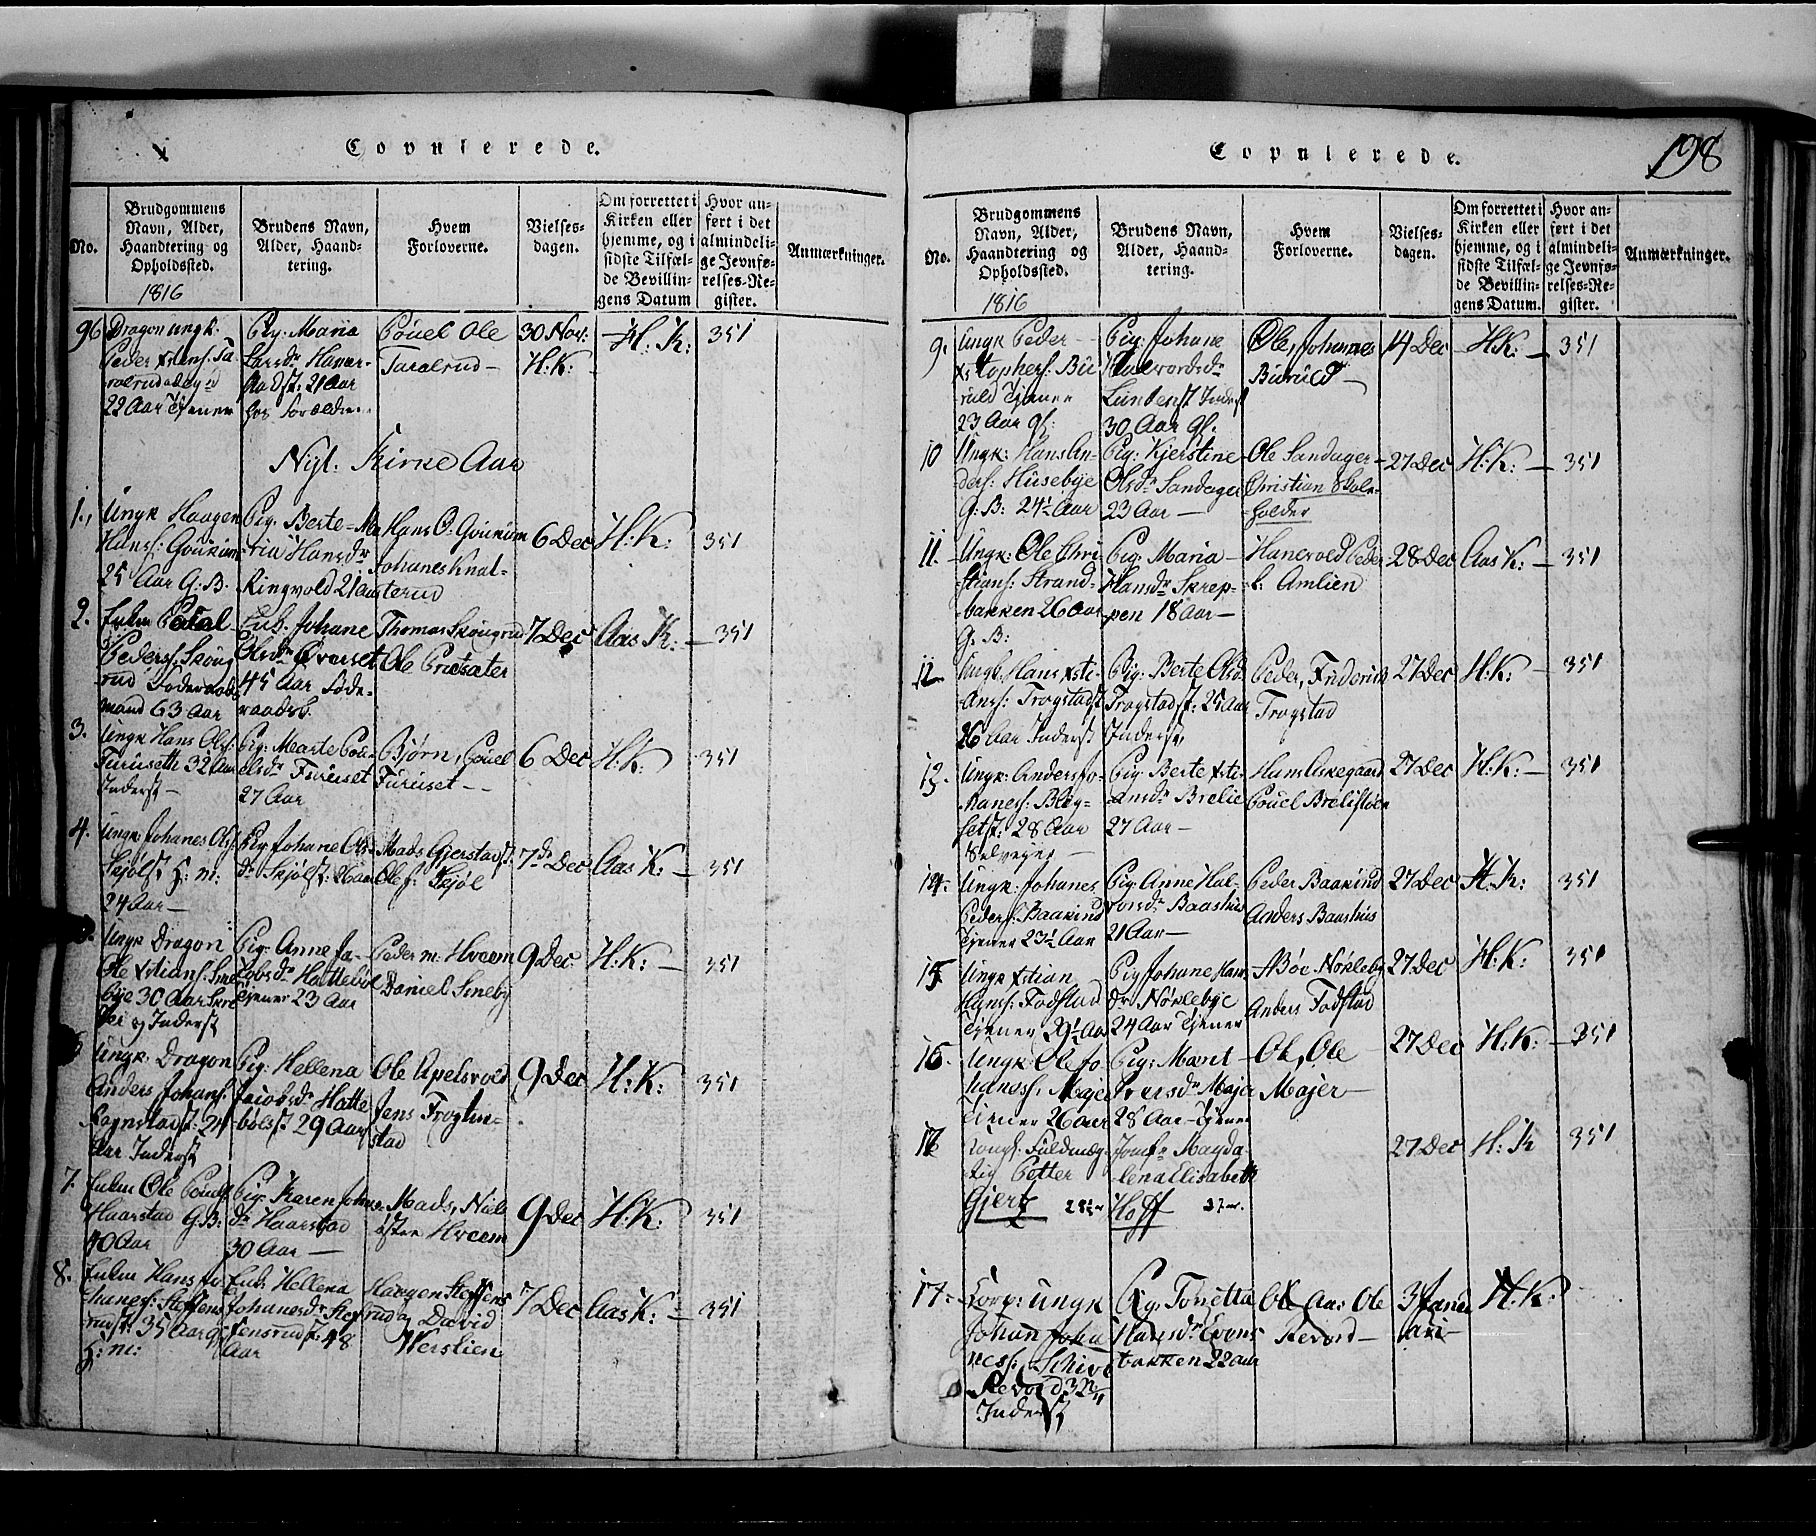 Copulerede.
No.
Brudgommens
Navn, Alder,
Haandtering og
Opholdssted.
1816
Brudens Navn,
Alder, Haand-
tering.
Hvem
Forloverne.
Vielses-
dagen.
Om forrettet i
Kirken eller
hjemme, og i
sidste Tilfæl-
de Bevillin-
gens Datum
Hvor an-
ført i det
almindeli-
ge Jevnfø-
relses-Re-
gister.
Anmærkninger.
96 Dragon ungk.
22 Aar Tjener
Pig: Maria
Larsdr Haver-
stadst: 21 Aar
hos Forældre
Pouel Ole
Taralrud -
30 Nov:
H:K:
H: K:
351
Nyt. Kirke Aar
1., Ungk Haagen
Hanss: Goukum
25 Aar G: B.
Pig. Berte Ma
ria Hansdr
Ringvold 21 Aar
Hans O: Goukum
Johanes Knat-
terud
6 Dec
H: K:
351
2. Enkm
Peders: Skoug
rud Føderaads
mand 63 Aar
Enk. Johane
Olsdr Overset
45 Aar Føde-
raadsk.
Thomas Skougrud
Ole Prestsæter
7 Dec
Aas K: -
351
3. Ungk Hans Ols:
Furuseth 32 Aar
Inderst -
Pig: Marte Pou-
elsdr Furuset
27 Aar
Bjørn, Pouel
Furuset - -
6 Dec
H: K:
351
4. Ungk: Johanes Ols:
Skjølst H: m:
24 Aar -
Pig Johane Ols
dr Skjølst: 26 aar
Mads Gjerstadst:
Ole f: Skjøl
7de Dec
Aas K: -
351
Ungk Dragon
Ole Xstians: Sme
bye 30 Aar
og Inderst
Pig: Anne Ja-
cobsdr Hattebøl
tjener 23 Aar
Peder m: Hveem
Daniel Smeby
9 Dec
H: K: -
351
Ungk. Dragon
Anders Johans:
Rognstadst: 24
Aar Inderst
Pig: Hellena
Jacobsdr Hatte
bølst 29 Aar
Ole Apelsvold
Jens Frogtun-
stad
9 Dec
H: K:
351
7. Enkm Ole Pouels
Haarstad G.B:
40 Aar
Pig: Karen Johns
dr Haarstad
30 Aar -
Mads, Niels
østen Hveem
9 Dec
H: K:
351
8. Enkm Hans Jo
hanes: Steffens
rudst: 35 Aar
H: m:
Enk. Hellena
Johanesdr Stef
fensrudst: 48
Aar
Haagen Steffens
rud og David
Werstien
7 Dec
Aas K: -
351
Copulerede.
198
No.
Brudgommens
Navn, Alder,
Haandtering og
Opholdssted.
1816
Brudens Navn,
Alder, Haand-
tering.
Hvem
Forloverne.
Vielses-
dagen.
Om forrettet i
Kirken eller
hjemme, og i
sidste Tilfæl-
de Bevillin-
gens Datum.
Hvor an-
ført i det
almindeli-
ge Jevnfø-
relses-Re-
gister.
Anmærkninger.
9. Ungk Peder -
Xstophers: Bu
ruld Tjener
23 Aar gl:
Pig: Johane
Halvordsdr
Lundenst Inderst
30 Aar gl.
Ole, Johannes
Buruld -
14 Dec
H.K: -
351
10 Ungk: Hans An-
ders: Husebye
G: B: 24½ Aar
Pig: Kjerstine
Olsdr Sandager
23 Aar -
Ole Sandager -
Christian Skole-
holder
27 Dec
H: K: -
351
11. Ungk: Ole Chri
stians: Strand-
bakken 26 Aar
G: B:
Pig: Maria -
Hansdr Skrep-
pen 18 Aar -
Hanevold Peder
k: Amlien
28 Dec
Aas K: -
351
12 Ungk. Hans Xsti-
Ans: Trogstadst
26 Aar Inderst
Pig: Berte Olsd
Trogstadst: 25 Aar
Inderst,
Peder, Friderich
Trogstad
27 Dec
H: K: -
351
13. Ungk: Anders Jo-
hanes: Blig-
setst: 28 Aar
Selveyer -
Pig: Berte Xsti-
ansdr Brelie
27 Aar -
Hans Askegaard
Pouel Breliestøen
27 Dec
H: K: -
351
14. Ungk: Johanes
Peders: Baakind
Tjener 23½ Aar
Pig: Anne Hal-
vorsdr Baashus
21 Aar -
Peder Baakind
Anders Baashus
27 Dec
H: K:
351
15 Ungk Xstian
Hans: Fodstad
Tjener 29½ Aar
Pig Johane Hans
dr Nøklebye
24 Aar Tjener
Aboe Nøkleby
Anders Fodstad
27 Dec
H: K:
351
16. Ungk Ole Jo
haness: Majer
Tiener 26 aar
Pig: Maret -
Iversdr Majer
28 Aar Tjener
Ole, Ole
Majer -
27 Dec
H: K: -
351
Petter
Gjertz
Jomfr Magda
lena Elisabeth
Hoff
27 Dec
H: K
351
17. Corp: ungk
Johan Joha
ness:
Revord 32
Inderst
Pig. Tonetta
Hansdr Evens
bakken 22 aar
Ole Aas Ole
Revord -
3 Janu
ari
H. K: